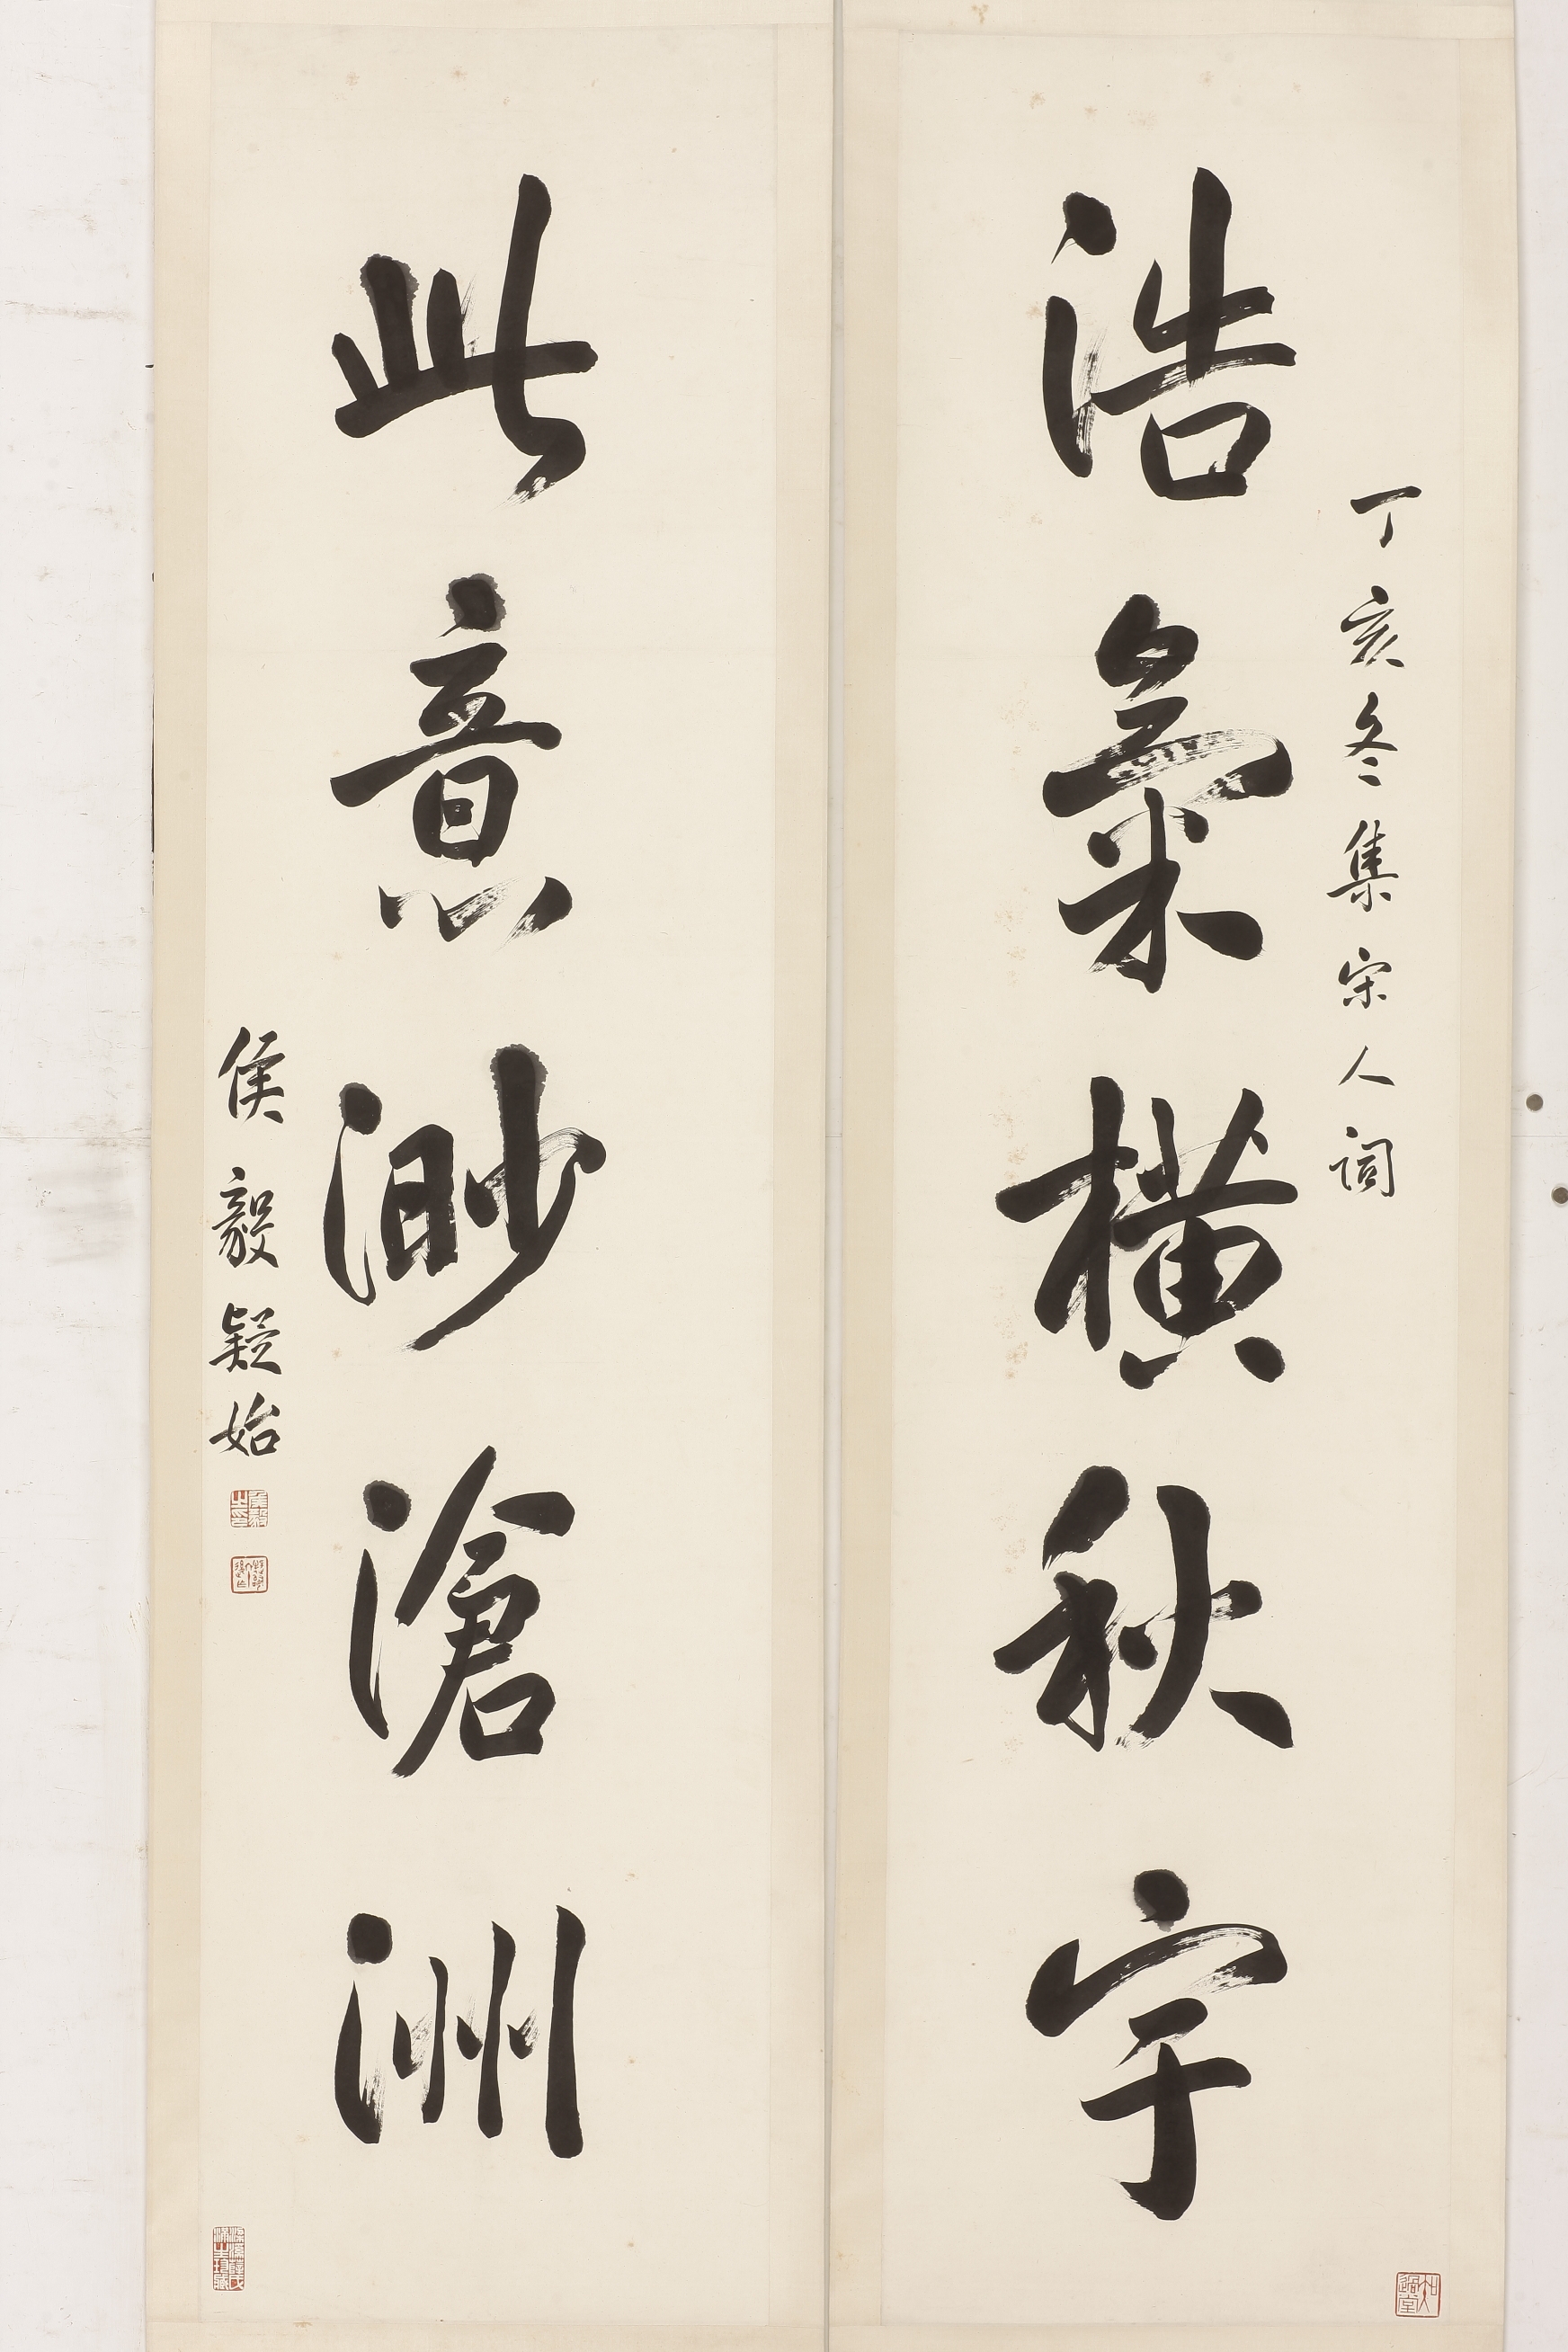 丁亥冬集宋人詞
浩氣橫秋宇
此意渺滄洲
侯毅疑始
侯毅之印